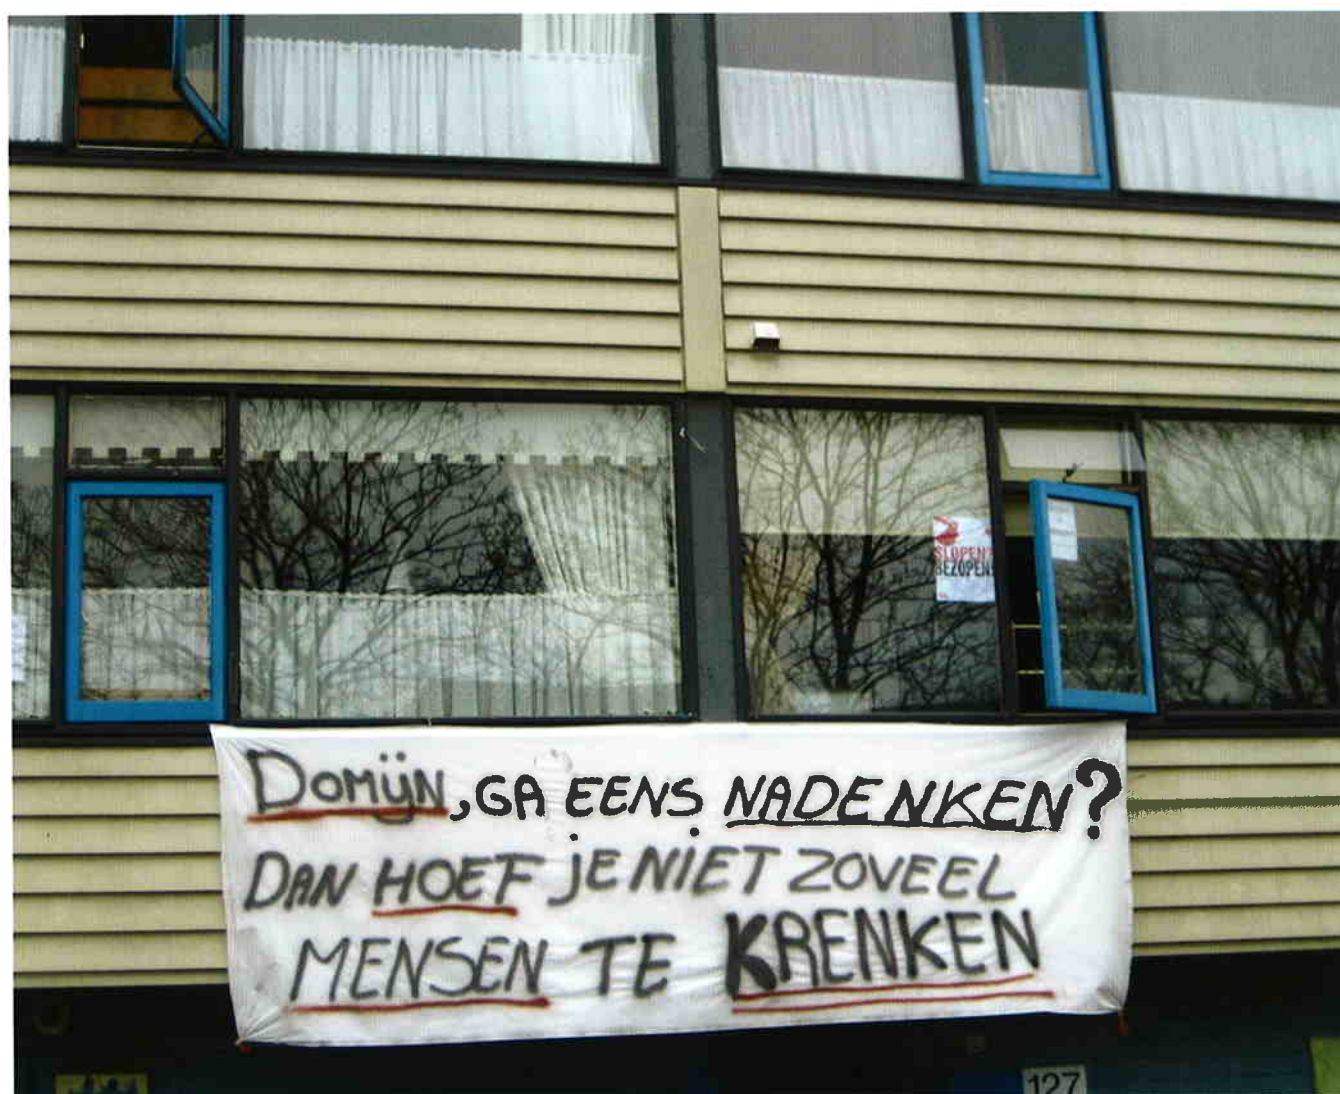 SLOPEN?
BEZOPEN!
Domijn, GA EENS NADENKEN?
DAN HOEF JE NIET ZOVEEL
MENSEN TE KRENKEN
127